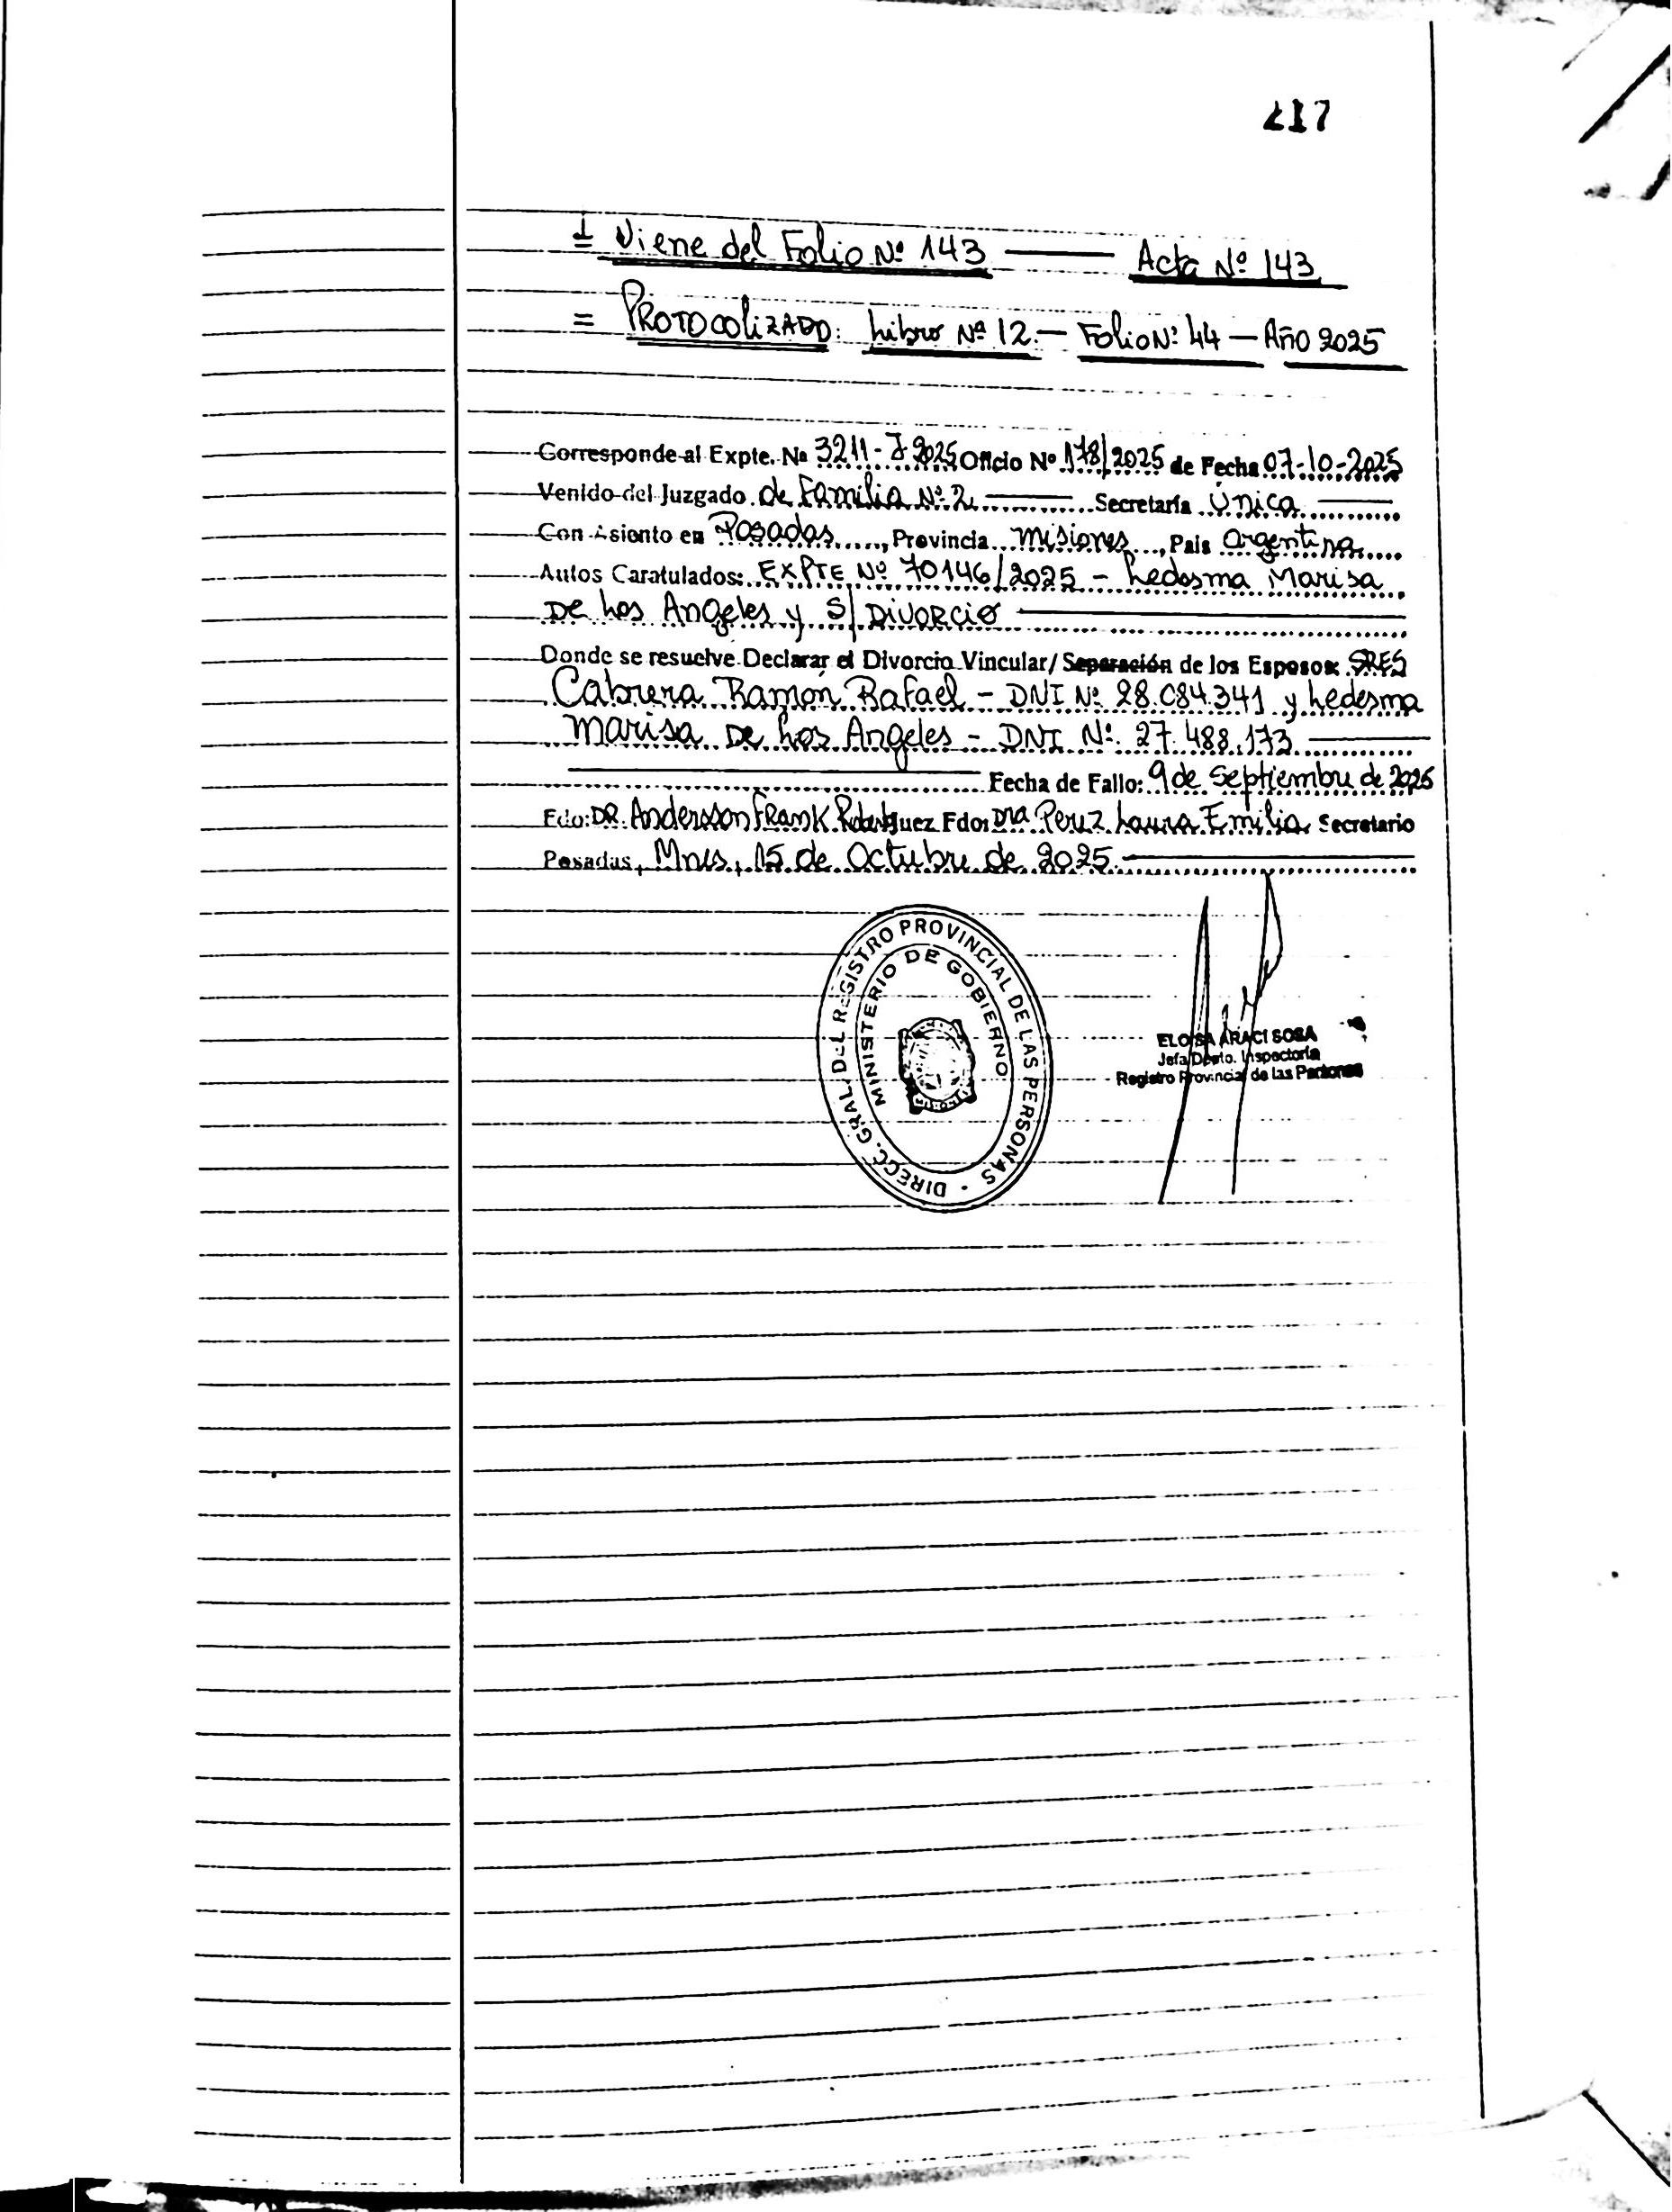 217
= Viene del Folio Nº 143 — Acta Nº 143
= PROTOCOLIZADO: Libro Nº 12.- Folio Nº 44 - Año 2025
Corresponde al Expte. Nº 3211-J-2025 Oficio Nº 178/2025 de Fecha 07-10-2025
Venido del Juzgado de Familia Nº 2 — Secretaría Única
Con Asiento en Posadas, Provincia Misiones, Pais Argentina
Autos Caratulados: EXPTE Nº 70146/2025 - Ledesma Marisa
De Los Angeles y S/ DIVORCIO
Donde se resuelve Declarar el Divorcio Vincular/ Separación de los Esposos: SRES
Cabrera Ramón Rafael - DNI Nº 28.084.341 y Ledesma
Marisa De Los Angeles - DNI Nº 27.488.173
Fecha de Fallo: 9 de Septiembre de 2025
Fdo: DR. Andersson Frank Fdo: Dra Perez Laura Emilia Secretario
Posadas, Mnes, 15 de Octubre de 2025.
DIRECC. GRAL. DEL REGISTRO PROVINCIAL DE LAS PERSONAS
MINISTERIO DE GOBIERNO
ELOISA ARACI SOSA
Jefa Depto. Inspectoría
Registro Provincial de las Personas